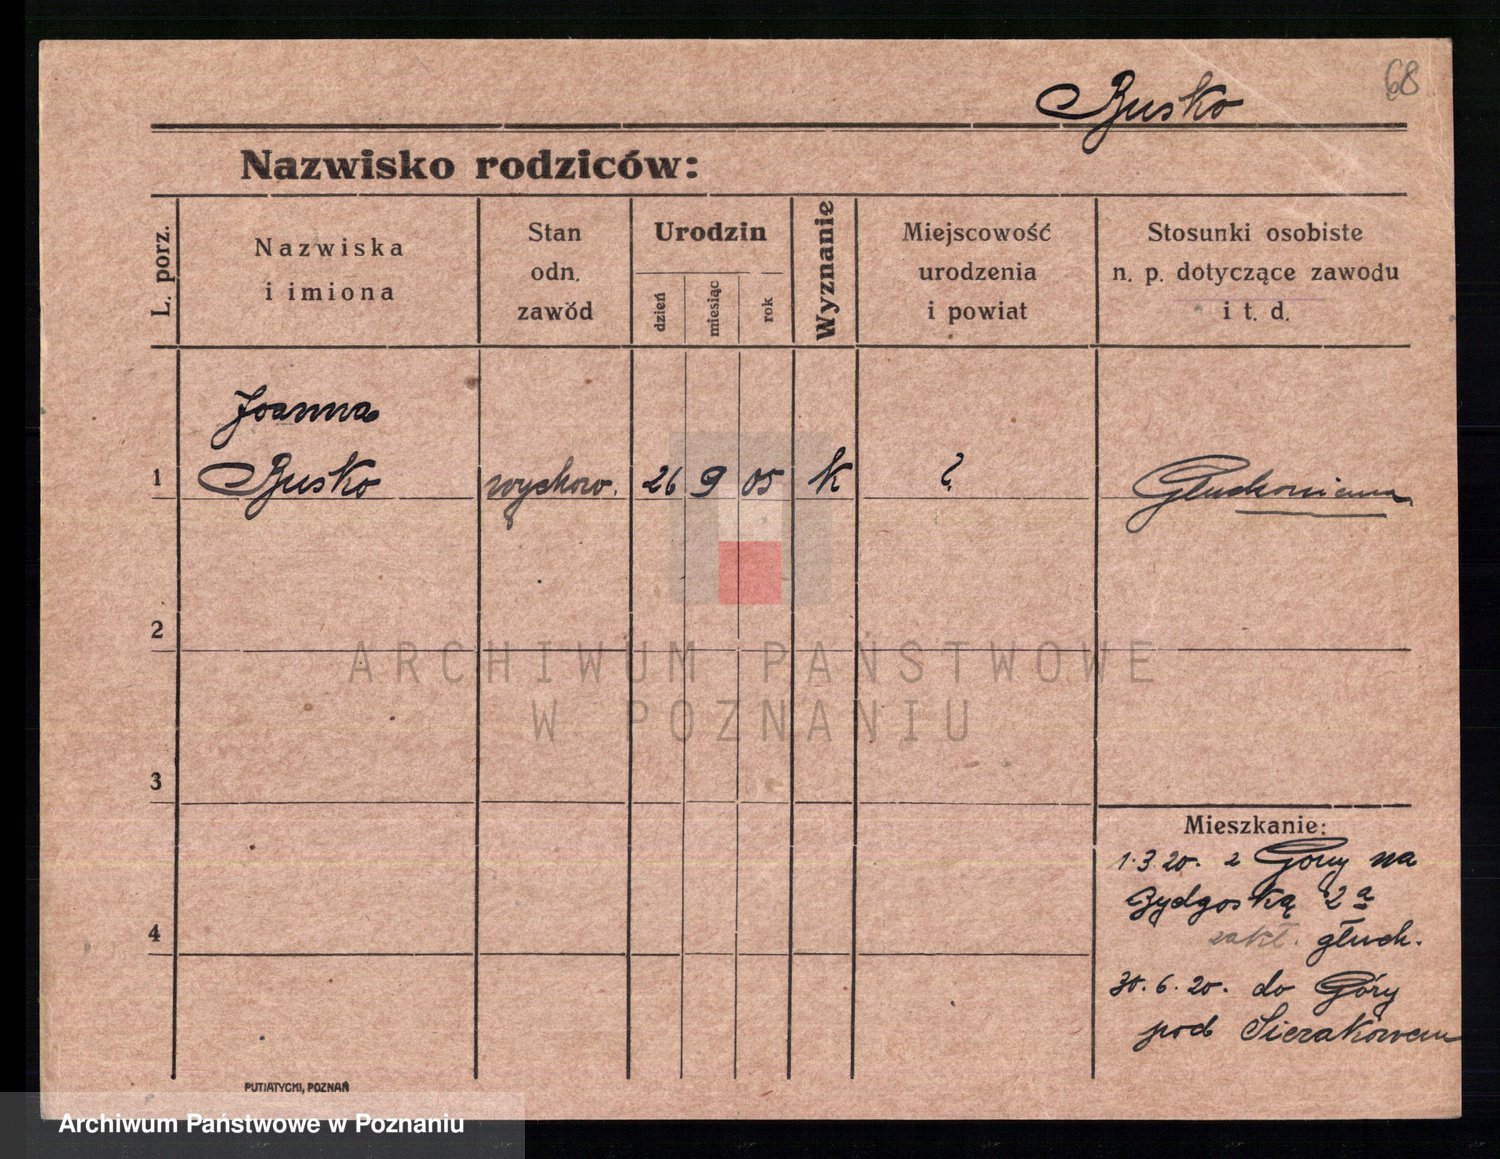 68
Busko
Nazwisko rodziców:
L. porz.
Nazwiska
i imiona
Stan
odn.
zawód
Urodzin
dzień
miesiąc
rok
Wyznanie
Miejscowość
urodzenia
i powiat
Stosunki osobiste
n. p. dotyczące zawodu
i t. d.
Joanna
1 Busko wychow. 26 9 05 k ? Głuchoniema
2
3
4
ARCHIWUM PAŃSTWOWE
W POZNANIU
Mieszkanie:
1.3.20. z Góry na
Bydgoską 2a
zakł. głuch.
30.6.20. do Góry
pod Sierakowem
PUTIATYCKI, POZNAŃ
Archiwum Państwowe w Poznaniu